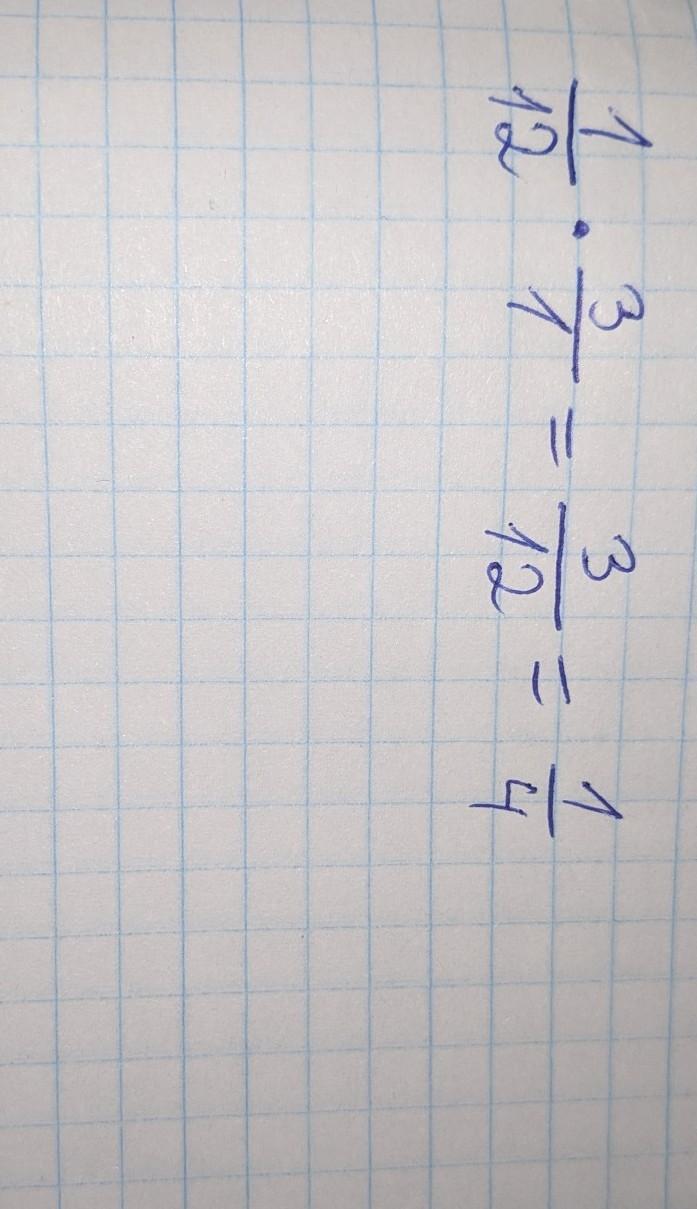 1/12 · 3/1 = 3/12 = 1/4